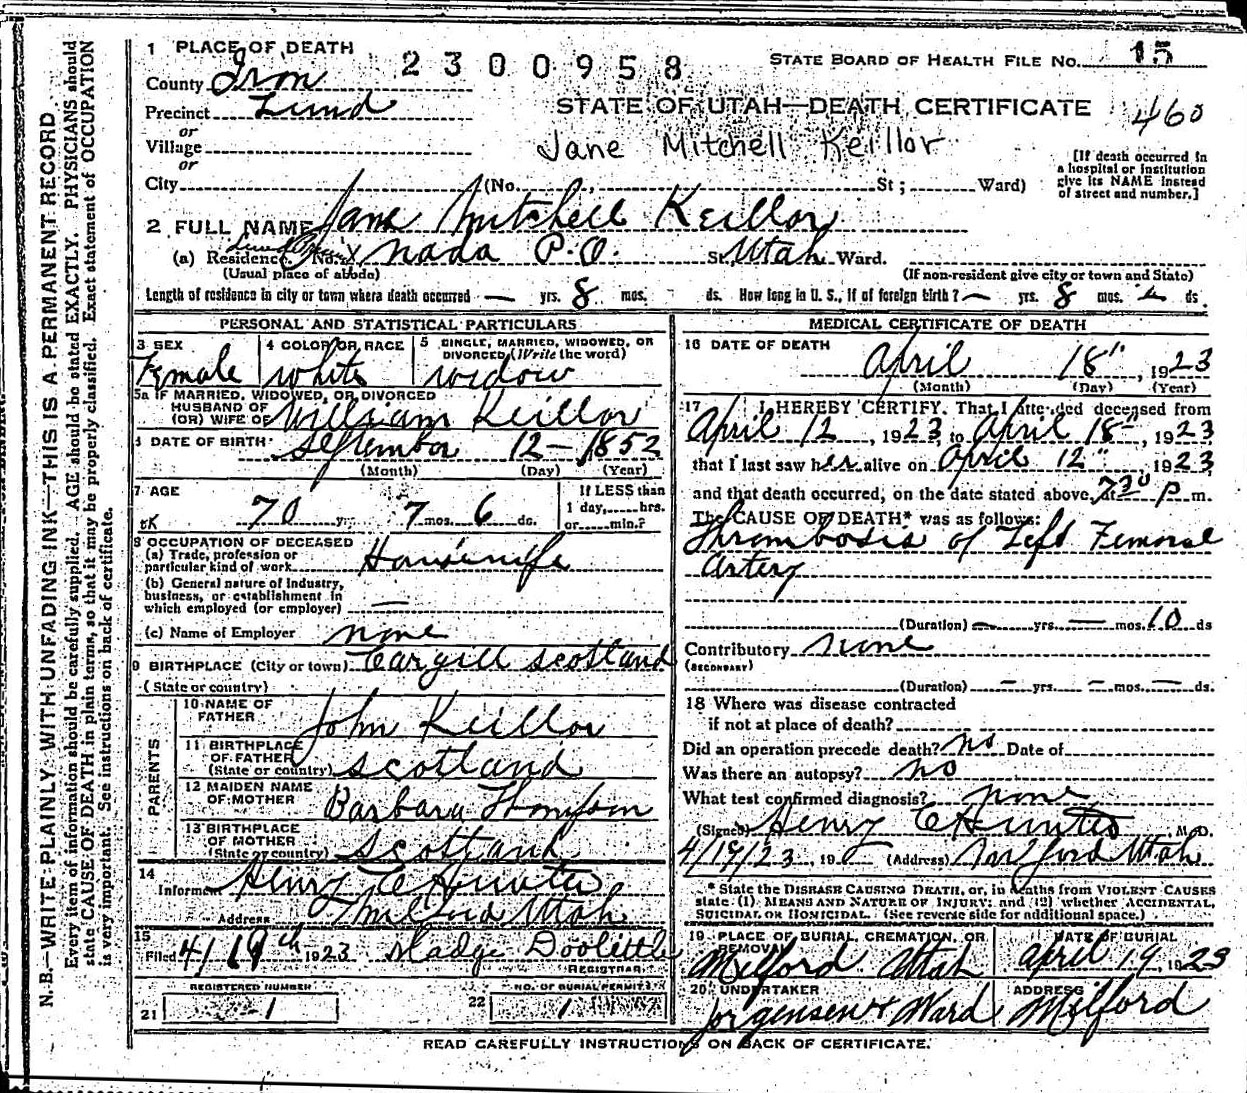 1 PLACE OF DEATH
2300958
STATE BOARD OF HEALTH FILE NO. 15
County Iron
STATE OF UTAH—DEATH CERTIFICATE
460
Precinct Lund
or
Village
Jane Mitchell Keillor
or
City (No. , St ; Ward)
[If death occurred in a hospital or institution give its NAME instead of street and number.]
2 FULL NAME Jane Mitchell Keillor
(a) Residence. No. Nada P.O. St. Utah Ward.
(Usual place of abode)
(If non-resident give city or town and State)
Length of residence in city or town where death occurred — yrs. 8 mos. ds. How long in U. S., if of foreign birth? — yrs. 8 mos. ds.
PERSONAL AND STATISTICAL PARTICULARS
3 SEX
Female
4 COLOR OR RACE
white
5 SINGLE, MARRIED, WIDOWED, OR DIVORCED (Write the word)
widow
5a IF MARRIED, WIDOWED, OR DIVORCED
HUSBAND OF
(OR) WIFE OF William Keillor
6 DATE OF BIRTH September 12 — 1852
(Month) (Day) (Year)
7 AGE
70 yr. 7 mos. 6 ds.
If LESS than
1 day, hrs.
or min.?
8 OCCUPATION OF DECEASED
(a) Trade, profession or
particular kind of work Housewife
(b) General nature of industry,
business, or establishment in
which employed (or employer) —
(c) Name of Employer none
9 BIRTHPLACE (City or town) Cargill Scotland
(State or country)
PARENTS
10 NAME OF
FATHER John Keillor
11 BIRTHPLACE
OF FATHER
(State or country) Scotland
12 MAIDEN NAME
OF MOTHER Barbara Thompson
13 BIRTHPLACE
OF MOTHER
(State or country) Scotland
14
Informant Henry C Hunter
Address Milford Utah
15
Filed 4/19th 1923 Madge Doolittle
REGISTRAR
REGISTERED NUMBER
21 1
NO. OF BURIAL PERMIT
22 1
MEDICAL CERTIFICATE OF DEATH
16 DATE OF DEATH
April 18", 1923
(Month) (Day) (Year)
17 I HEREBY CERTIFY. That I attended deceased from
April 12, 1923, to April 18", 1923
that I last saw her alive on April 12", 1923
and that death occurred, on the date stated above, at 7:30 P. m.
The CAUSE OF DEATH* was as follows:
Thrombosis of Left Femoral
artery
(Duration) — yrs. — mos. 10 ds
Contributory none
(SECONDARY)
(Duration) — yrs. — mos. — ds.
18 Where was disease contracted
if not at place of death?
Did an operation precede death? no Date of
Was there an autopsy? no
What test confirmed diagnosis? none
(Signed) Henry C Hunter M.D.
4/19/23 19 (Address) Milford Utah
* State the DISEASE CAUSING DEATH, or, in deaths from VIOLENT CAUSES
state (1) MEANS AND NATURE OF INJURY; and (2) whether ACCIDENTAL,
SUICIDAL OR HOMICIDAL. (See reverse side for additional space.)
19 PLACE OF BURIAL, CREMATION, OR REMOVAL
Milford Utah
DATE OF BURIAL
April 19, 1923
20 UNDERTAKER
Jorgensen & Ward
ADDRESS
Milford
READ CAREFULLY INSTRUCTIONS ON BACK OF CERTIFICATE.
N. B.—WRITE PLAINLY, WITH UNFADING INK—THIS IS A PERMANENT RECORD.
Every item of information should be carefully supplied. AGE should be stated EXACTLY. PHYSICIANS should
state CAUSE OF DEATH in plain terms, so that it may be properly classified. Exact statement of OCCUPATION
is very important. See instructions on back of certificate.